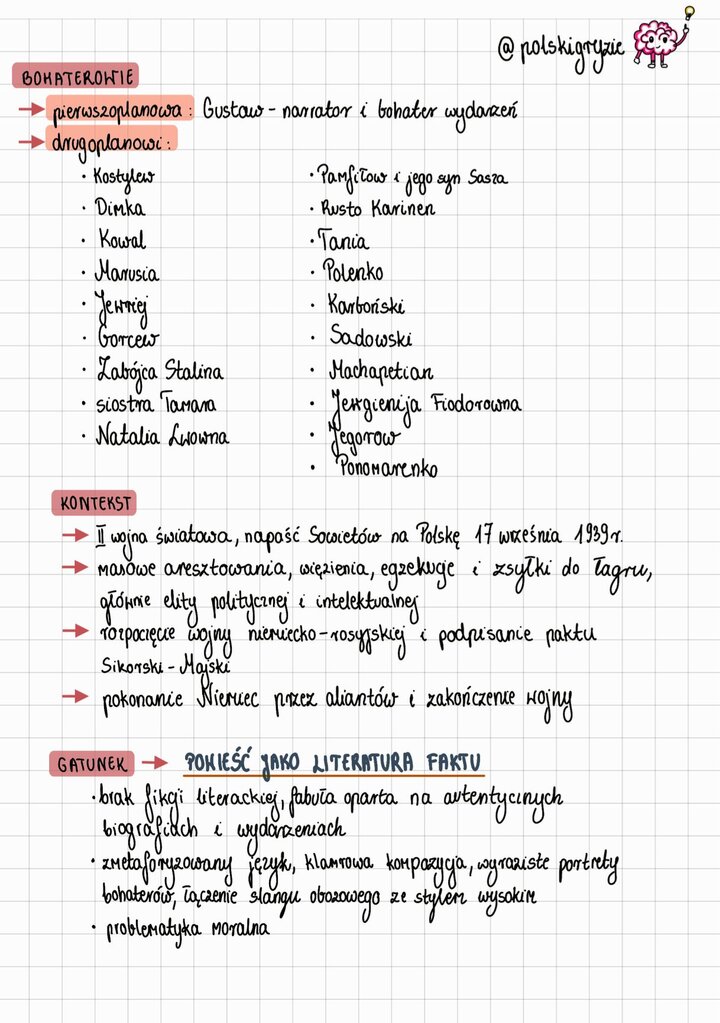 @polskigryzie
BOHATEROWIE
→ pierwszoplanowa: Gustaw - narrator i bohater wydarzeń
→ drugoplanowi:
· Kostylew
· Dimka
· Kowal
· Marusia
· Jewriej
· Gorcew
· Zabójca Stalina
· siostra Tamara
· Natalia Lwowna
· Pamfiłow i jego syn Sasza
· Rusto Karinen
· Tania
· Polenko
· Karboński
· Sadowski
· Machapetian
· Jewgienija Fiodorowna
· Jegorow
· Ponomarenko
KONTEKST
→ II wojna światowa, napaść Sowietów na Polskę 17 września 1939r.
→ masowe aresztowania, więzienia, egzekucje i zsyłki do łagru,
głównie elity politycznej i intelektualnej
→ rozpoczęcie wojny niemiecko-rosyjskiej i podpisanie paktu
Sikorski - Majski
→ pokonanie Niemiec przez aliantów i zakończenie wojny
GATUNEK → POWIEŚĆ JAKO LITERATURA FAKTU
· brak fikcji literackiej, fabuła oparta na autentycznych
biografiach i wydarzeniach
· zmetaforyzowany język, klamrowa kompozycja, wyraziste portrety
bohaterów, łączenie slangu obozowego ze stylem wysokim
· problematyka moralna